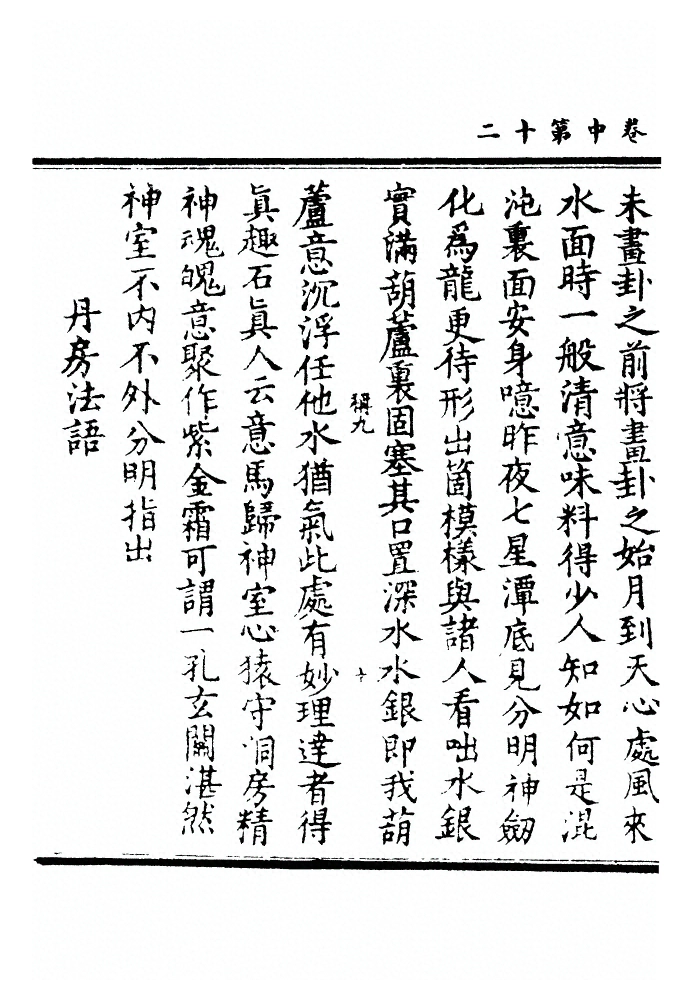 卷中第十二
未畫卦之前將畫卦之始月到天心處風來
水面時一般清意味料得少人知如何是混
沌裏面安身噫昨夜七星潭底見分明神劒
化爲龍更待形出箇模樣與諸人看咄水銀
實滿葫蘆裏固塞其口置深水水銀即我葫
稱九
蘆意沉浮任他水猶氣此處有妙理達者得
眞趣石眞人云意馬歸神室心猿守洞房精
神魂魄意聚作紫金霜可謂一孔玄關湛然
神室不内不外分明指出
丹房法語